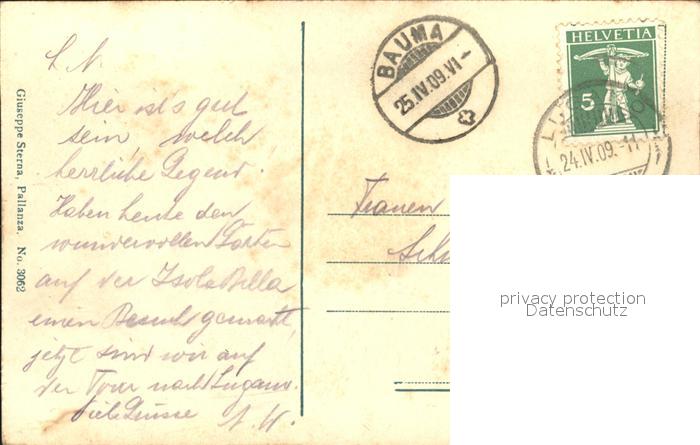 L. N.
Hier ist's gut
sein, welch
herrliche Gegend.
Haben heute den
wundervollen Garten
auf der Isola Bella
einen Besuch gemacht,
jetzt sind wir auf
der Tour nach Lugano.
Viele Grüsse
Giuseppe Sterna, Pallanza. No. 3062
BAUMA
25.IV.09.VI-
HELVETIA
5
24.IV.09.-11
Frauen
privacy protection
Datenschutz